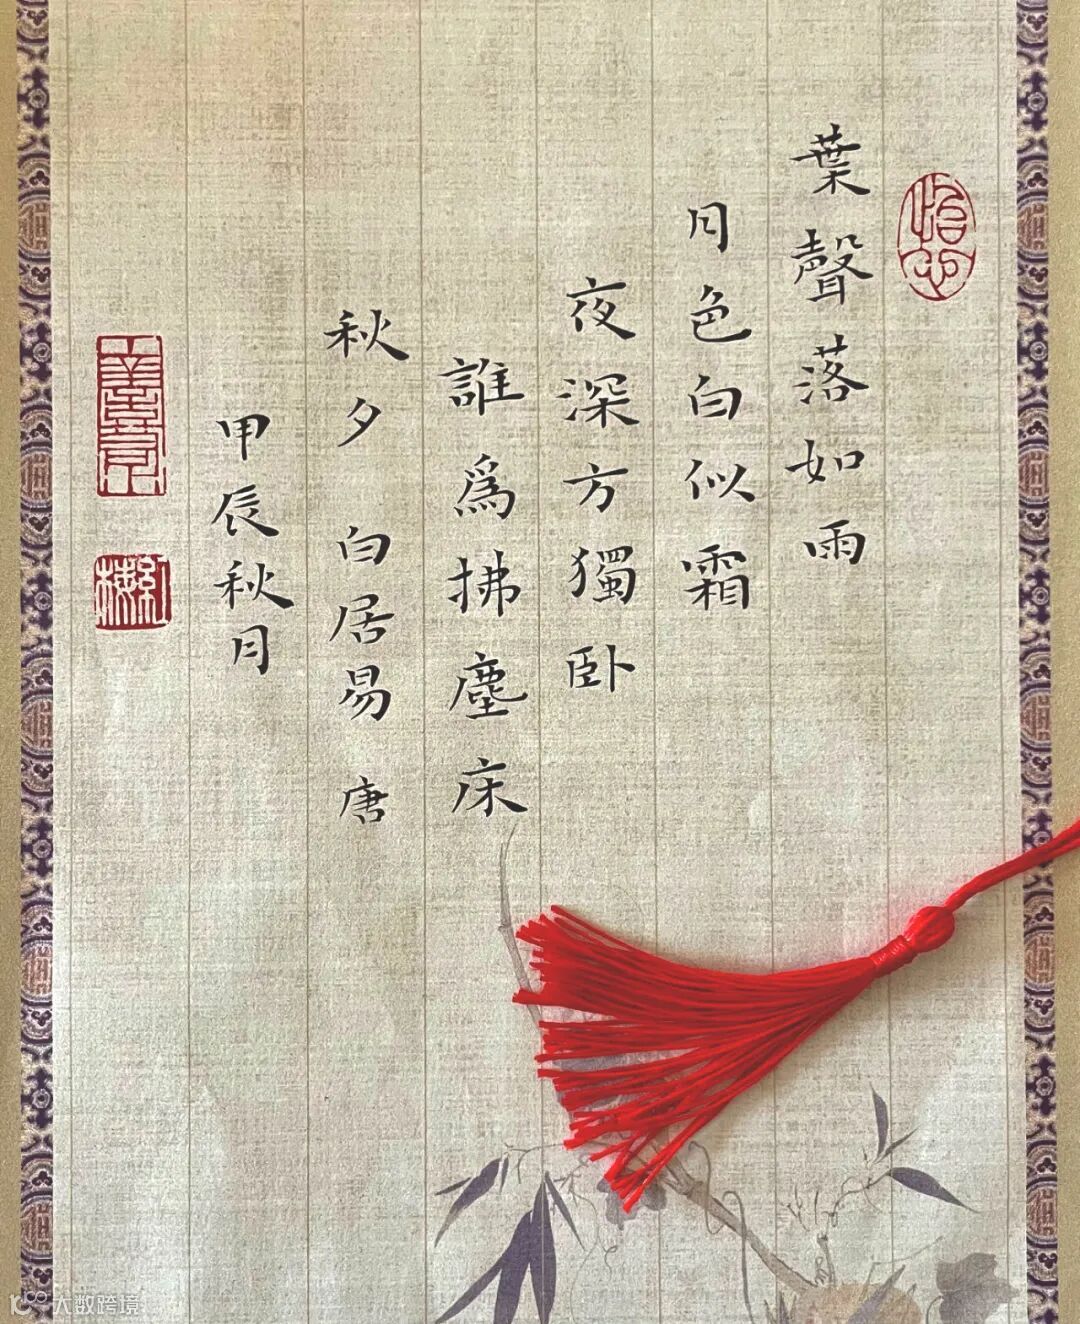 葉聲落如雨
月色白似霜
夜深方獨卧
誰爲拂塵床
秋夕 白居易 唐
甲辰秋月
怡心
大数跨境